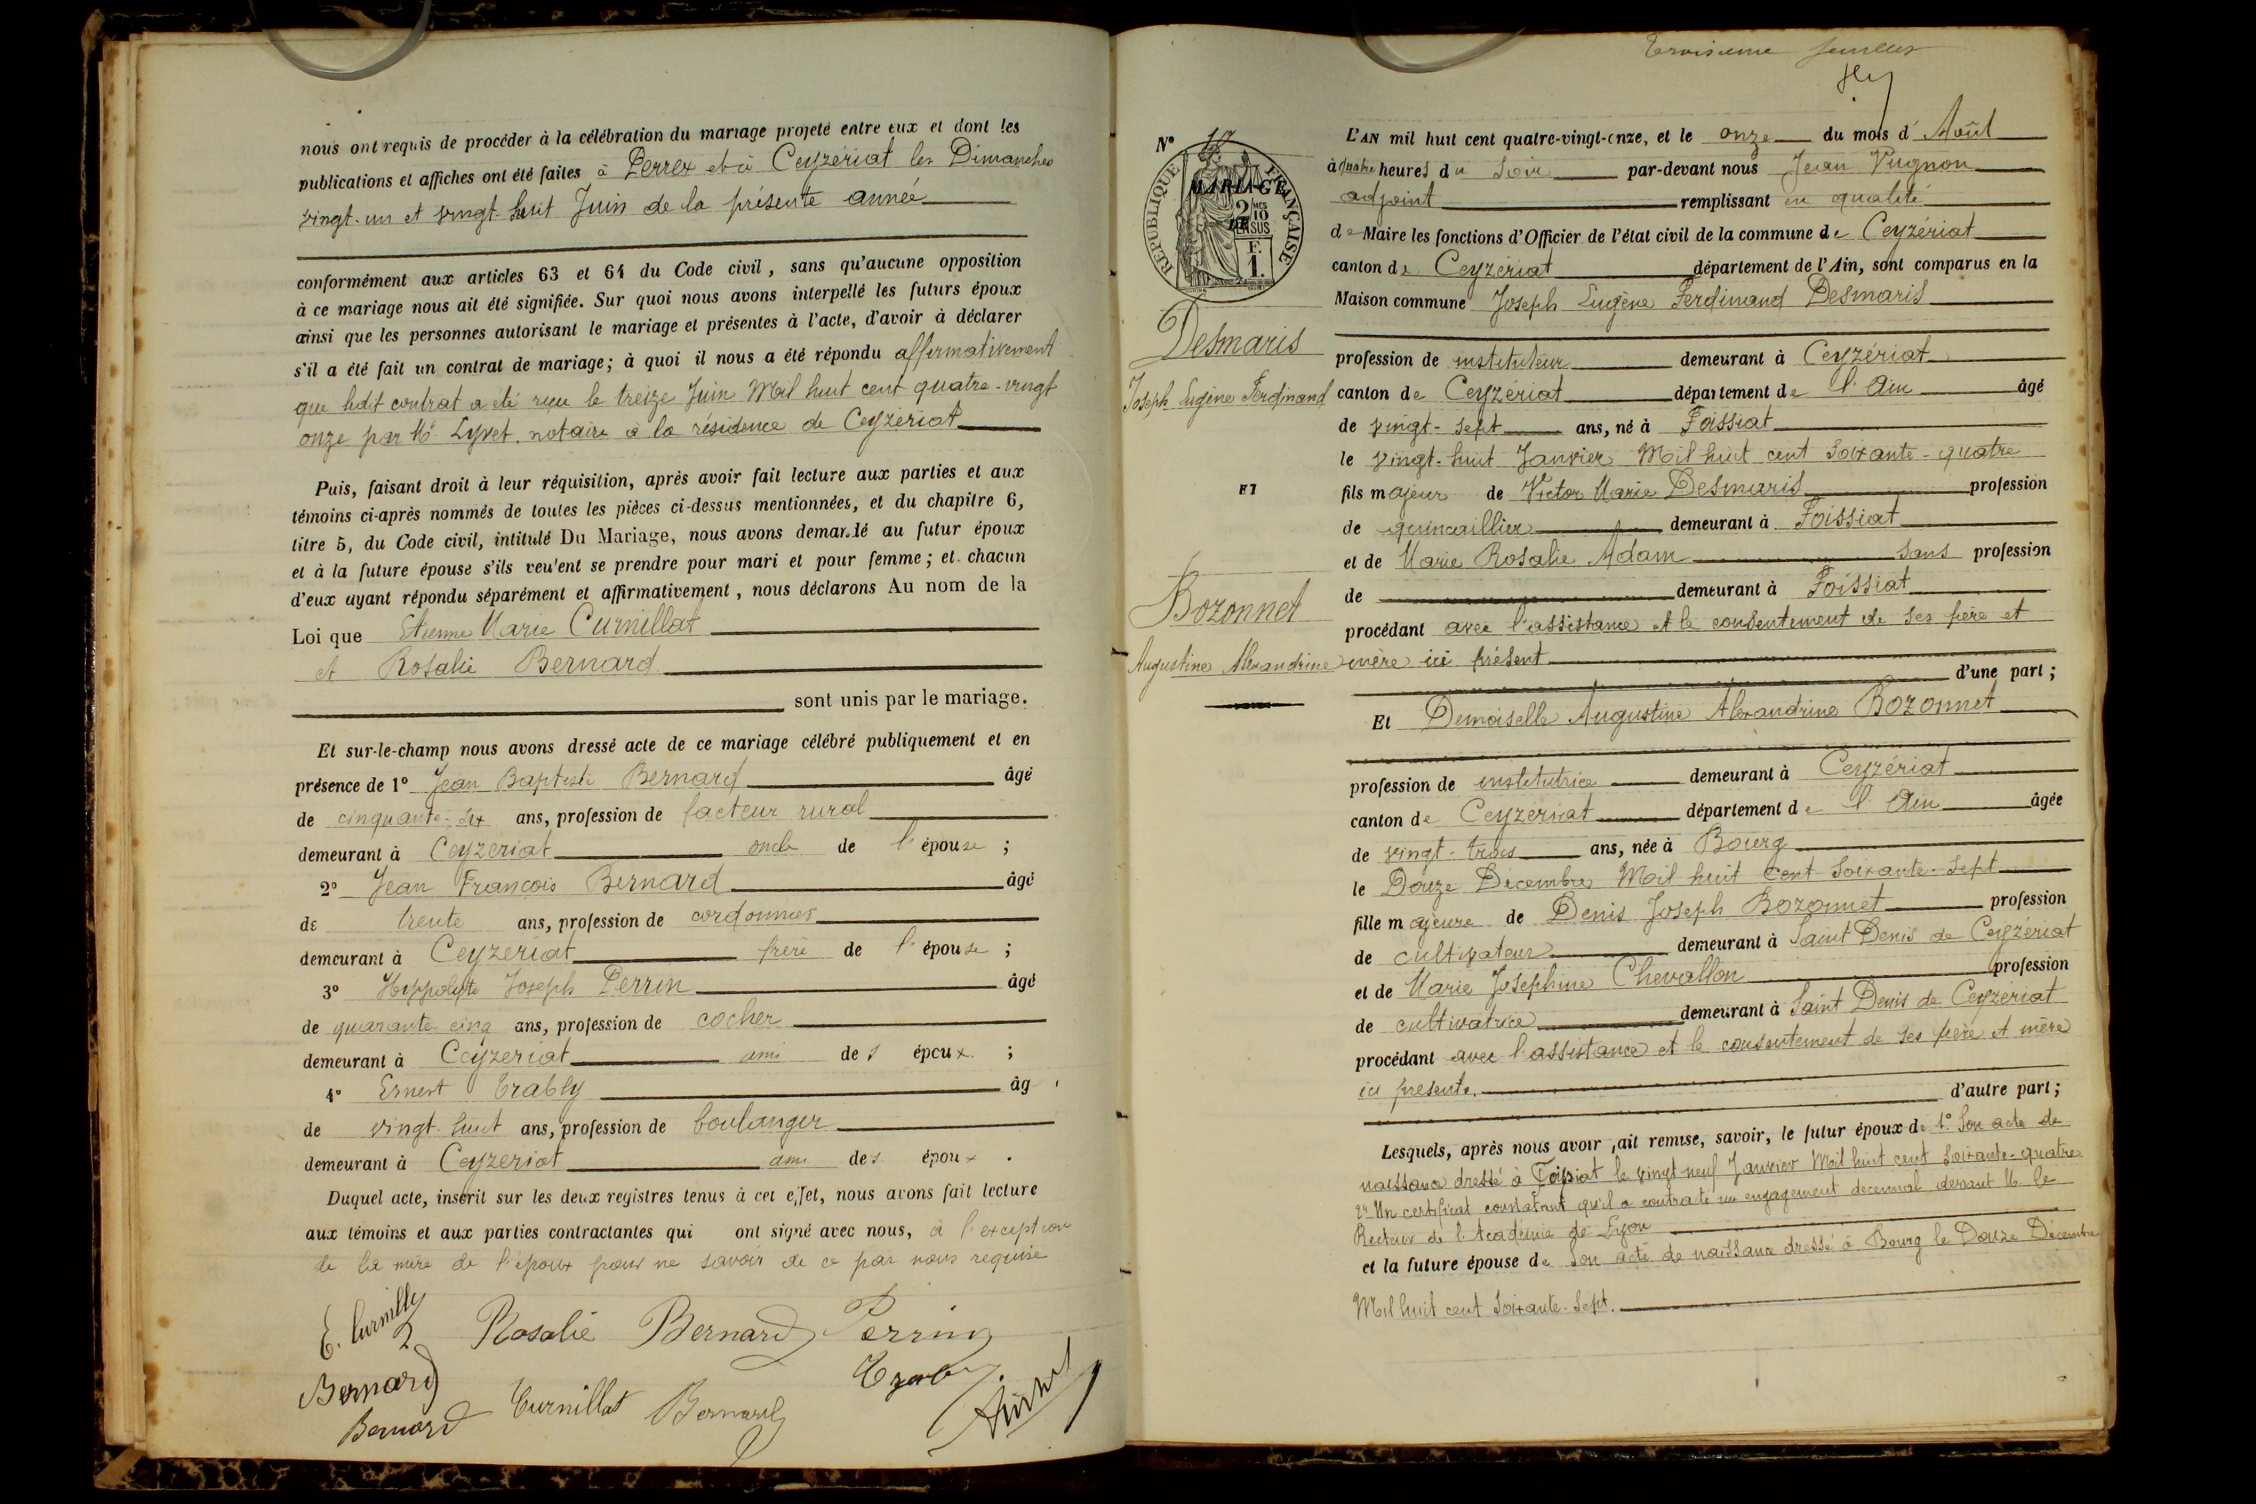 nous ont requis de procéder à la célébration du mariage projeté entre eux et dont les
publications et affiches ont été faites à Perrex et à Ceyzériat les Dimanches
vingt-un et vingt-huit Juin de la présente année
conformément aux articles 63 et 64 du Code civil, sans qu'aucune opposition
à ce mariage nous ait été signifiée. Sur quoi nous avons interpellé les futurs époux
ainsi que les personnes autorisant le mariage et présentes à l'acte, d'avoir à déclarer
s'il a été fait un contrat de mariage; à quoi il nous a été répondu affirmativement
que ledit contrat a été reçu le treize Juin Mil huit cent quatre-vingt
onze par Me Lyvet, notaire à la résidence de Ceyzériat
Puis, faisant droit à leur réquisition, après avoir fait lecture aux parties et aux
témoins ci-après nommés de toutes les pièces ci-dessus mentionnées, et du chapitre 6,
titre 5, du Code civil, intitulé Du Mariage, nous avons demandé au futur époux
et à la future épouse s'ils veulent se prendre pour mari et pour femme; et chacun
d'eux ayant répondu séparément et affirmativement, nous déclarons Au nom de la
Loi que Etienne Marie Curnillat
et Rosalie Bernard
sont unis par le mariage.
Et sur-le-champ nous avons dressé acte de ce mariage célébré publiquement et en
présence de 1° Jean Baptiste Bernard âgé
de cinquante-six ans, profession de facteur rural
demeurant à Ceyzeriat oncle de l'épouse ;
2° Jean François Bernard âgé
de trente ans, profession de cordonnier
demeurant à Ceyzeriat frère de l'épouse ;
3° Hippolyte Joseph Perrin âgé
de quarante cinq ans, profession de cocher
demeurant à Ceyzeriat ami des époux ;
4° Ernest Trably âg
de vingt-huit ans, profession de boulanger
demeurant à Ceyzeriat ami des époux .
Duquel acte, inscrit sur les deux registres tenus à cet effet, nous avons fait lecture
aux témoins et aux parties contractantes qui ont signé avec nous, à l'exception
de la mère de l'époux pour ne savoir de ce par nous requise
Rosalie Bernard Perrin
Bernard Curnillat Bernard
Bernard
Troisième
N° 17
RÉPUBLIQUE FRANÇAISE
MARIAGE
DE
Desmaris
Joseph Eugène Ferdinand
ET
Bozonnet
Augustine Alexandrine
L'AN mil huit cent quatre-vingt-onze, et le onze du mois d'Août
à quatre heures du soir par-devant nous Jean Pugnon
adjoint remplissant en qualité
de Maire les fonctions d'Officier de l'état civil de la commune de Ceyzériat
canton de Ceyzériat département de l'Ain, sont comparus en la
Maison commune Joseph Eugène Ferdinand Desmaris
profession de instituteur demeurant à Ceyzériat
canton de Ceyzériat département de l'Ain âgé
de vingt-sept ans, né à Foissiat
le vingt-huit Janvier Mil huit cent soixante-quatre
fils majeur de Victor Marie Desmaris profession
de quincaillier demeurant à Foissiat
et de Marie Rosalie Adam sans profession
de demeurant à Foissiat
procédant avec l'assistance et le consentement de ses père et
mère ici présent
d'une part ;
Et Demoiselle Augustine Alexandrine Bozonnet
profession de institutrice demeurant à Ceyzériat
canton de Ceyzeriat département de l'Ain âgée
de vingt-trois ans, née à Bourg
le Douze Décembre Mil huit cent soixante-sept
fille majeure de Denis Joseph Bozonnet profession
de cultivateur demeurant à Saint Denis de Ceyzériat
et de Marie Joséphine Chevallon profession
de cultivatrice demeurant à Saint Denis de Ceyzériat
procédant avec l'assistance et le consentement de ses père et mère
ici présents.
d'autre part ;
Lesquels, après nous avoir fait remise, savoir, le futur époux de 1° Son acte de
naissance dressé à Foissiat le vingt neuf Janvier Mil huit cent soixante-quatre
2° Un certificat constatant qu'il a contracté un engagement décennal devant M le
Recteur de l'Académie de Lyon
et la future épouse de Son acte de naissance dressé à Bourg le Douze Décembre
Mil huit cent soixante-sept.